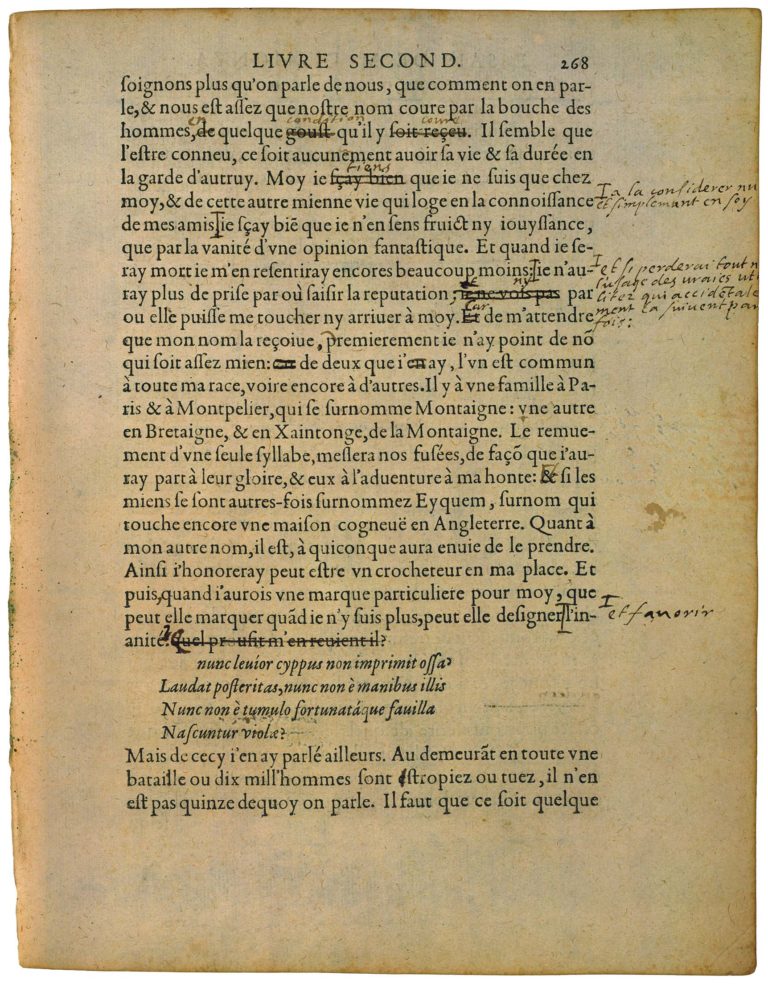 LIVRE SECOND. 268
ſoignons plus qu'on parle de nous, que comment on en par-
le, & nous eſt aſſez que noſtre nom coure par la bouche des
en condition coure
hommes, de quelque gouſt qu'il y ſoit reçeu. Il ſemble que
l'eſtre conneu, ce ſoit aucunement auoir ſa vie & ſa durée en
tiens
la garde d'autruy. Moy ie ſçay bien que ie ne ſuis que chez
moy, & de cette autre mienne vie qui loge en la connoiſſance
a la considerer nu
et simplemant en soy
de mes amis ie ſçay biē que ie n'en ſens fruict ny iouyſſance,
que par la vanité d'vne opinion fantaſtique. Et quand ie ſe-
ray mort ie m'en reſentiray encores beaucoup moins: ie n'au-
et si perderai tout n
l'usage des uraies ut
litez qui accidētale
ment la suivent par
fois:
ny
ray plus de priſe par où ſaiſir la reputation; ie ne vois pas par
ou elle puiſſe me toucher ny arriuer à moy. Et de m'attendre
Car
que mon nom la reçoiue, premierement ie n'ay point de nō
qui ſoit aſſez mien: car de deux que i'en ay, l'vn eſt commun
à toute ma race, voire encore à d'autres. Il y à vne famille à Pa-
ris & à Montpelier, qui ſe ſurnomme Montaigne: vne autre
en Bretaigne, & en Xaintonge, de la Montaigne. Le remue-
ment d'vne ſeule ſyllabe, meſlera nos fuſées, de façō que i'au-
ray part à leur gloire, & eux à l'aduenture à ma honte: & ſi les
miens ſe ſont autres-fois ſurnommez Eyquem, ſurnom qui
touche encore vne maiſon cogneuë en Angleterre. Quant à
mon autre nom, il eſt, à quiconque aura enuie de le prendre.
Ainſi i'honoreray peut eſtre vn crocheteur en ma place. Et
puis, quand i'aurois vne marque particuliere pour moy, que
peut elle marquer quād ie n'y ſuis plus, peut elle deſigner l'in-
et favorir
anité? Quel proufit m'en reuient il?
nunc leuior cyppus non imprimit oſſa?
Laudat poſteritas, nunc non è manibus illis
Nunc non è tumulo fortunatáque fauilla
Naſcuntur violæ?
Mais de cecy i'en ay parlé ailleurs. Au demeurāt en toute vne
bataille ou dix mill'hommes ſont eſtropiez ou tuez, il n'en
eſt pas quinze dequoy on parle. Il faut que ce ſoit quelque